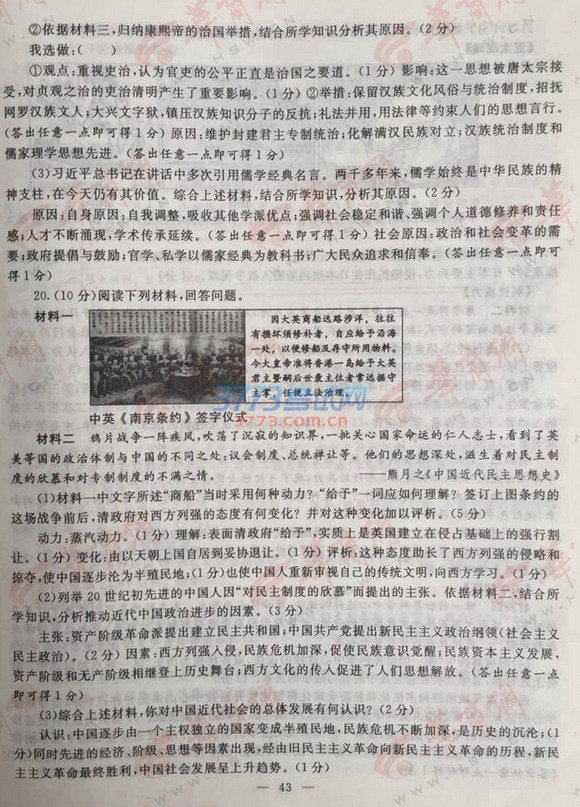 ②依据材料三,归纳康熙帝的治国举措,结合所学知识分析其原因。(2分)
我选做:( )
①观点:重视吏治,认为官吏的公平正直是治国之要道。(1分)影响:这一思想被唐太宗接
受,对贞观之治的吏治清明产生了重要影响。(1分)②举措:保留汉族文化风俗与统治制度,招抚
网罗汉族文人;大兴文字狱,镇压汉族知识分子的反抗;礼法并用,用法律等约束人们的思想言行。
(答出任意一点即可得1分)原因:维护封建君主专制统治;化解满汉民族对立;汉族统治制度和
儒家理学思想先进。(答出任意一点即可得1分)
(3)习近平总书记在讲话中多次引用儒学经典名言。两千多年来,儒学始终是中华民族的精
神支柱,在今天仍有其价值。综合上述材料,结合所学知识,分析其原因。(2分)
原因:自身原因:自我调整,吸收其他学派优点;强调社会稳定和谐、强调个人道德修养和责任
感;人才不断涌现,学术传承延续。(答出任意一点即可得1分)社会原因:政治和社会变革的需
要;政府提倡与鼓励;官学、私学以儒家经典为教科书;广大民众追求和信奉。(答出任意一点即可
得1分)
20.(10分)阅读下列材料,回答问题。
材料一
因大英商船远路涉洋,往往
有损坏须修补者,自应给予沿海
一处,以便修船及存守所用物料。
今大皇帝准将香港一岛给予大英
君主暨嗣后世袭主位者常远据守
主掌,任便立法治理。
3773考试网
3773.com.cn
中英《南京条约》签字仪式
材料二 鸦片战争一阵疾风,吹荡了沉寂的知识界,一批关心国家命运的仁人志士,看到了英
美等国的政治体制与中国的不同之处:议会制度、总统禅让等。他们的思想深处,滋生着对民主制
度的欣慕和对专制制度的不满之情。 ——熊月之《中国近代民主思想史》
(1)材料一中文字所述“商船”当时采用何种动力?“给予”一词应如何理解?签订上图条约的
这场战争前后,清政府对西方列强的态度有何变化?并对这种变化加以评析。(5分)
动力:蒸汽动力。(1分)理解:表面清政府“给予”,实质上是英国建立在侵占基础上的强行割
让。(1分)变化:由以天朝上国自居到妥协退让。(1分)评析:这种态度助长了西方列强的侵略和
掠夺,使中国逐步沦为半殖民地;(1分)也使中国人重新审视自己的传统文明,向西方学习。(1分)
(2)列举20世纪初先进的中国人因“对民主制度的欣慕”而提出的主张。依据材料二,结合所
学知识,分析推动近代中国政治进步的因素。(3分)
主张:资产阶级革命派提出建立民主共和国;中国共产党提出新民主主义政治纲领(社会主义
民主政治)。(2分)因素:西方列强入侵,民族危机加深,促使民族意识觉醒;民族资本主义发展,
资产阶级和无产阶级相继登上历史舞台;西方文化的传入促进了人们思想解放。(答出任意一点
即可得1分)
(3)综合上述材料,你对中国近代社会的总体发展有何认识?(2分)
认识:中国逐步由一个主权独立的国家变成半殖民地,民族危机不断加深,是历史的沉沦;(1
分)同时先进的经济、阶级、思想等因素出现,经由旧民主主义革命向新民主主义革命的历程,新民
主主义革命最终胜利,中国社会发展呈上升趋势。(1分)
— 43 —